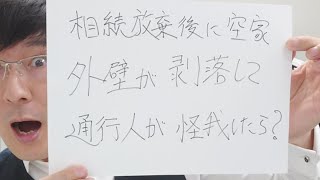 相続放棄後に空家
外壁が剥落して
通行人が怪我したら?